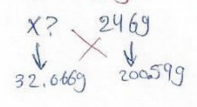 x? 246g
32.066g 200.59g